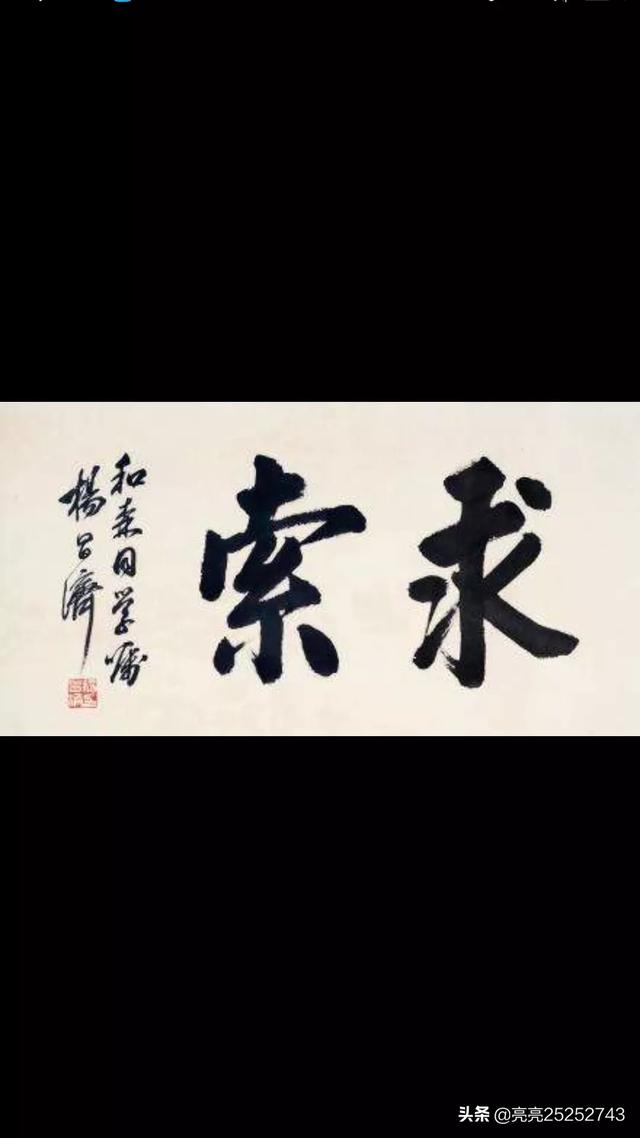 求索
和森同学嘱
楊昌濟
头条 @亮亮25252743